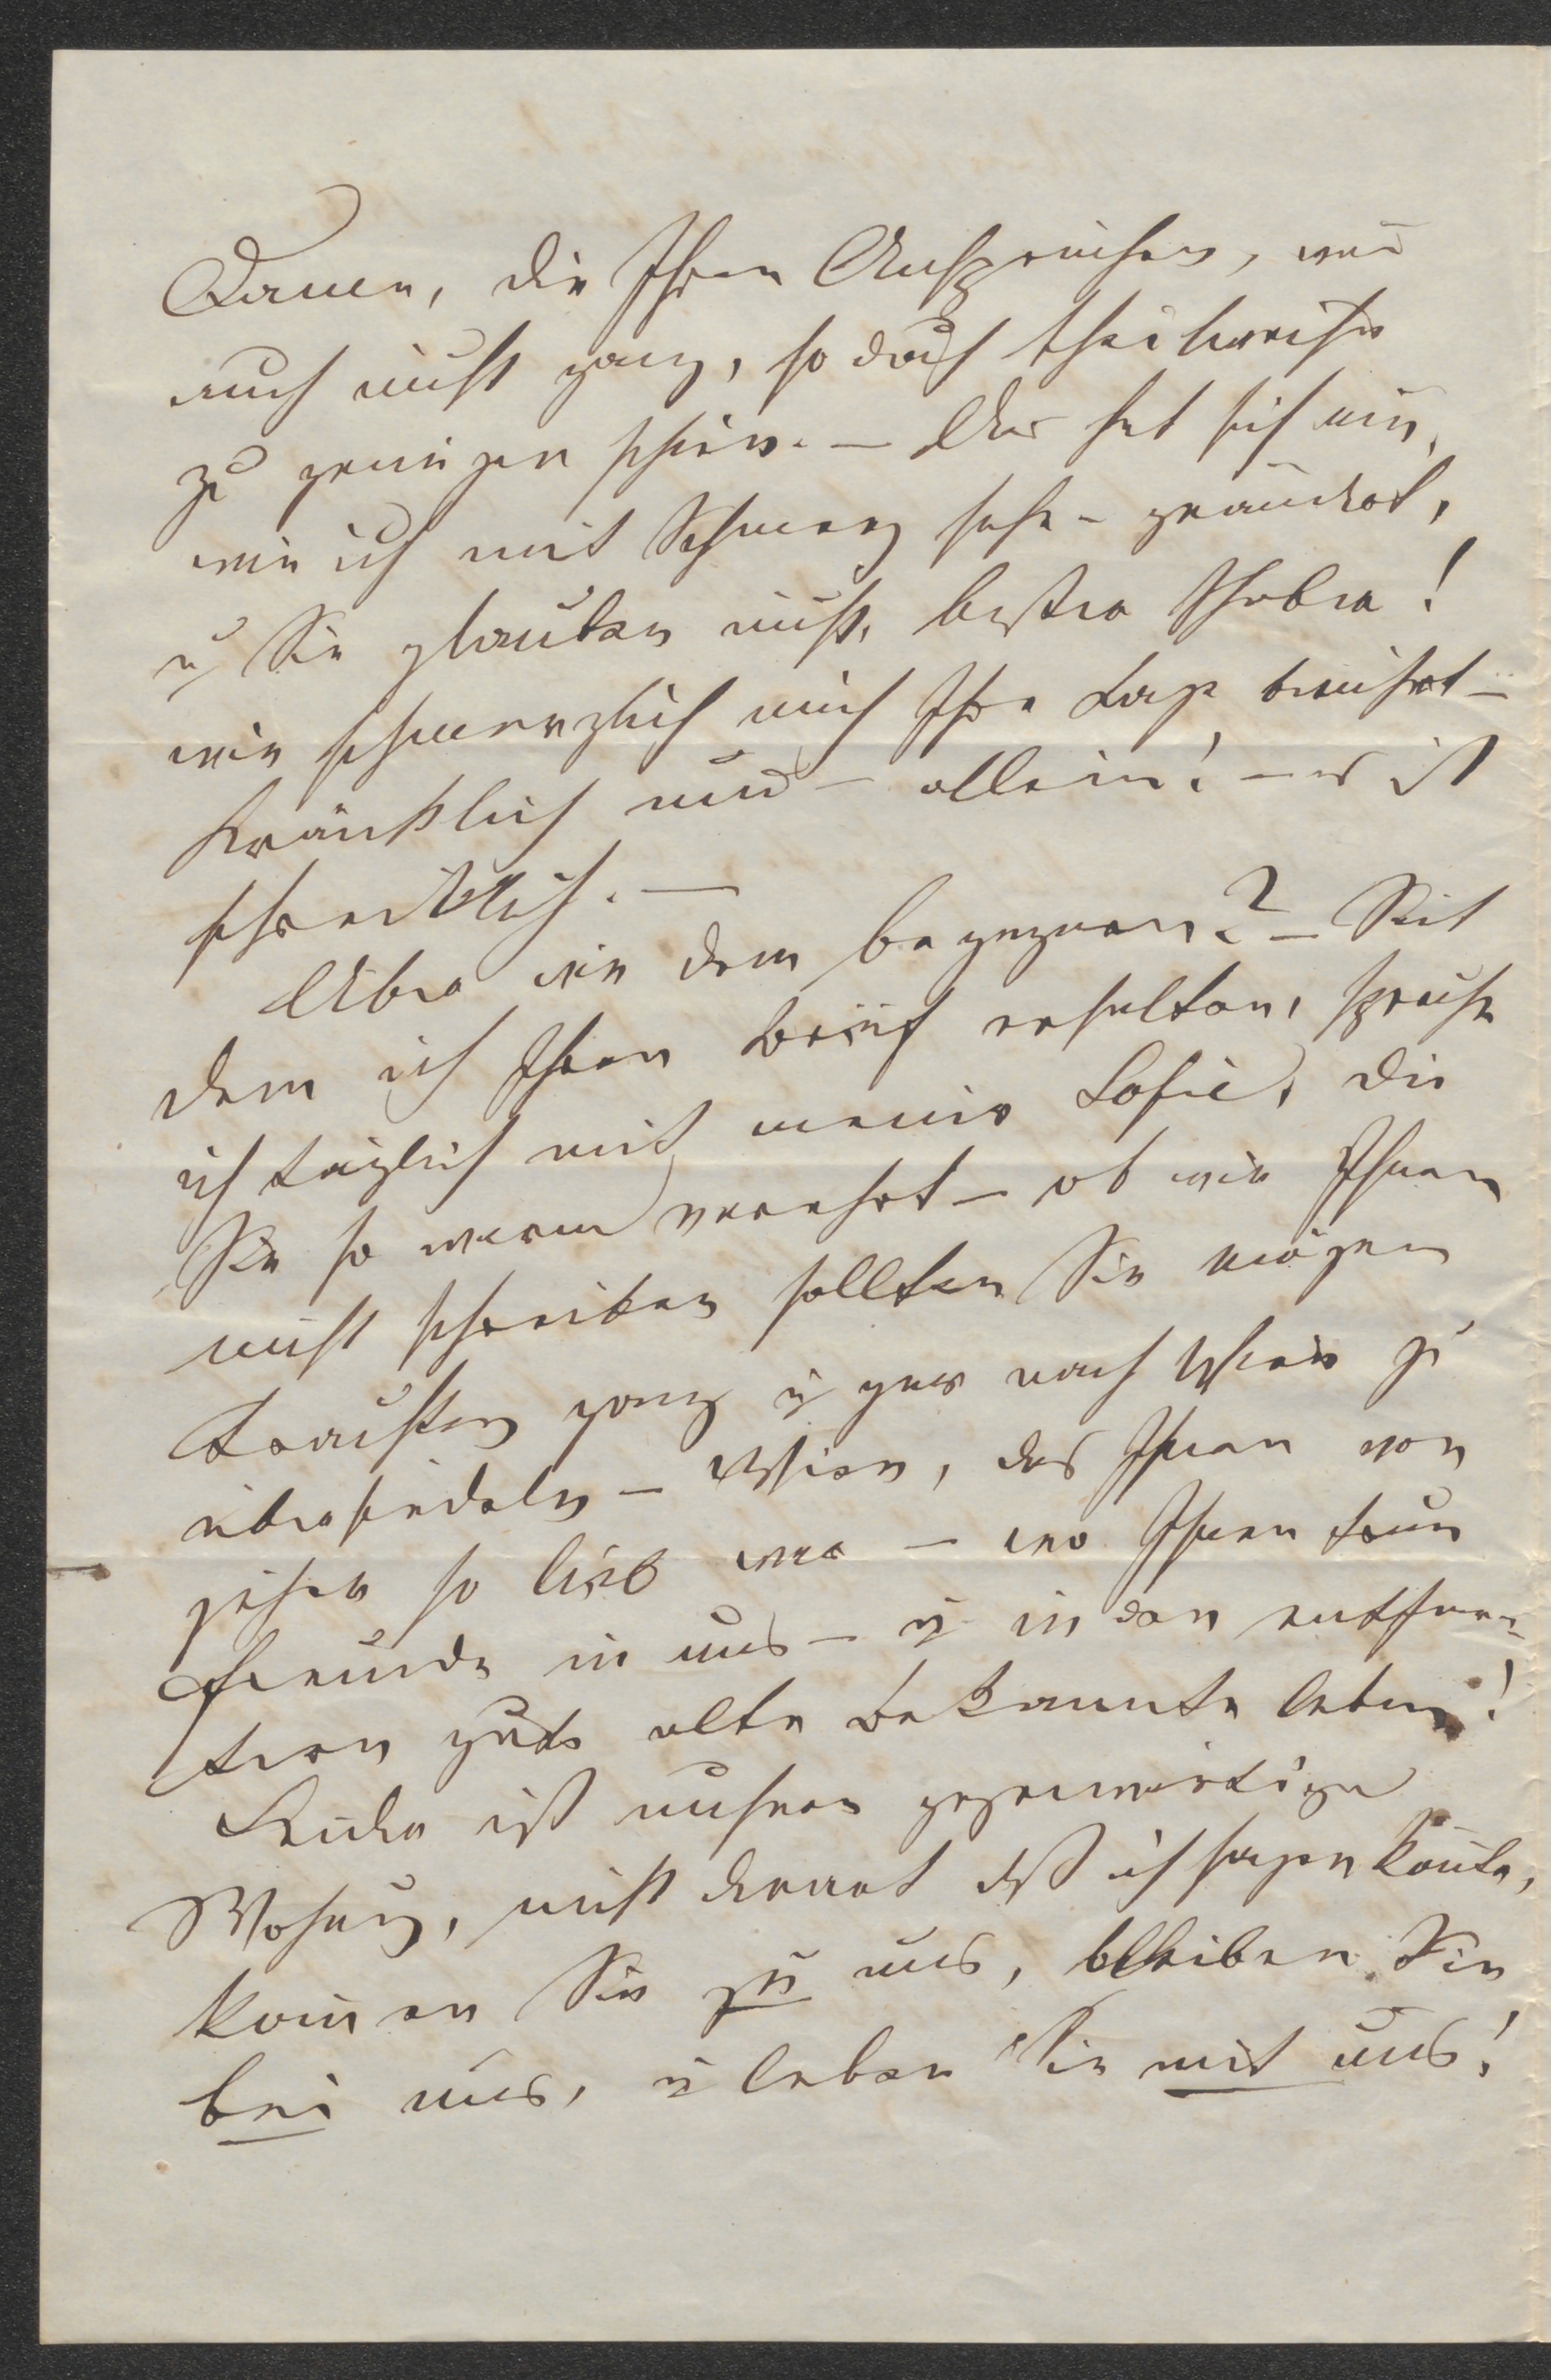 Damen, die Ihren Ansprüchen, wenn
auch nicht ganz, so doch theilweise
zu genügen schien. — Das hat sich nun,
wie ich mit Schmerz sehe – geändert,
u. Sie glauben nicht, bester Thober!
wie schmerzlich mich Ihre Lage berührt —
kränklich und — allein! — es ist
schrecklich. —
Aber wie dem begegnen? — Seit
dem ich Ihren Brief erhalten, spreche
ich täglich mit meiner Sofie, die
Sie so warm verehrt — ob wir Ihnen
nicht schreiben sollten Sie mögen
trachten ganz u gar nach Wien zu
übersiedeln — Wien, das Ihnen von
jeher so lieb war — wo Ihnen treue
Freunde in uns — u. in den entfern-
teren gute alte Bekannte leben!
Leider ist unsere gegenwärtige
Wohnung, nicht derart daß ich sagen könnte,
kommen Sie zu uns, bleiben Sie
bei uns, u leben Sie mit uns!